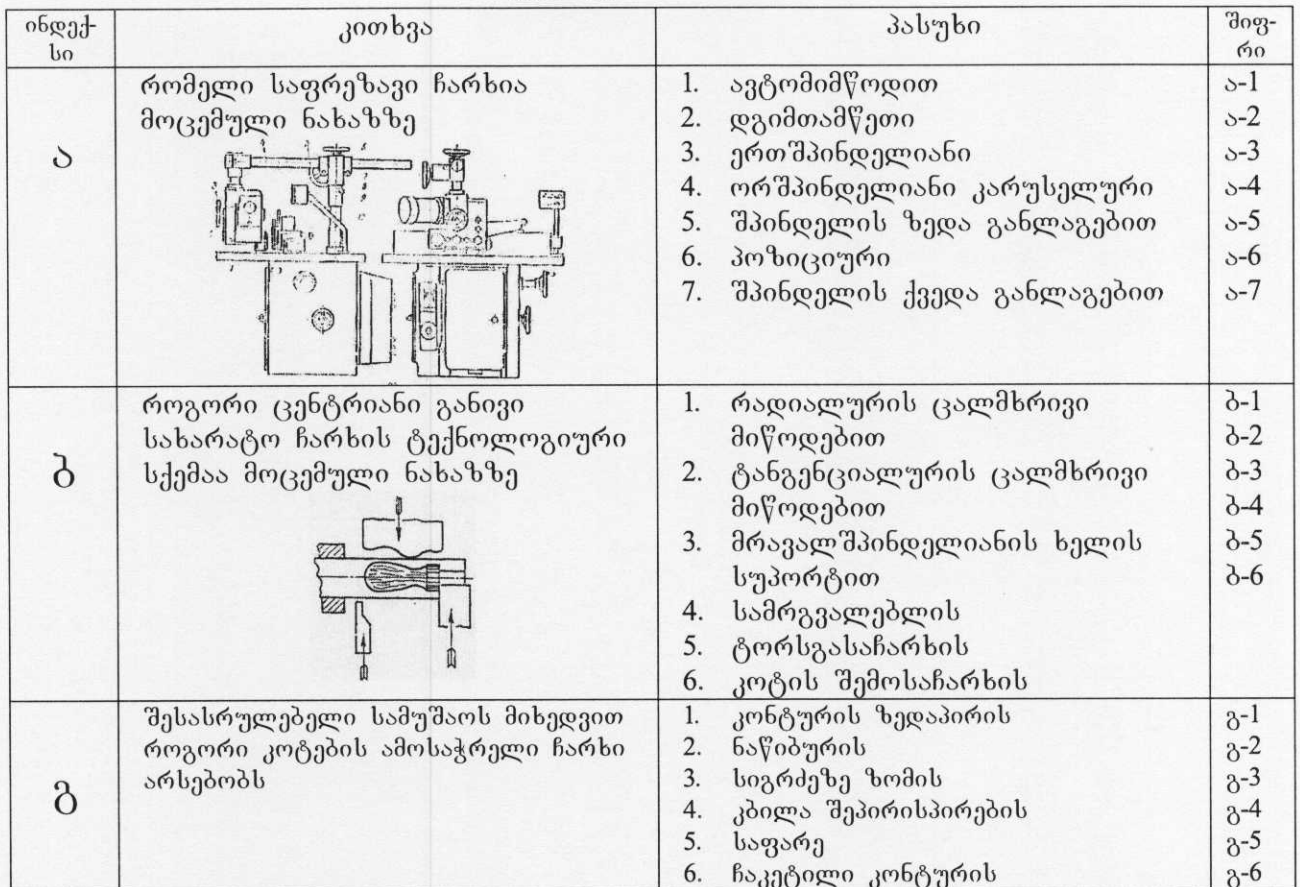 ინდექ-
სი
კითხვა
პასუხი
შიფ-
რი
ა
რომელი საფრეზავი ჩარხია
მოცემული ნახაზზე
1. ავტომიმწოდით
2. დგიმთამწეთი
3. ერთშპინდელიანი
4. ორშპინდელიანი კარუსელური
5. შპინდელის ზედა განლაგებით
6. პოზიციური
7. შპინდელის ქვედა განლაგებით
ა-1
ა-2
ა-3
ა-4
ა-5
ა-6
ა-7
ბ
როგორი ცენტრიანი განივი
სახარატო ჩარხის ტექნოლოგიური
სქემაა მოცემული ნახაზზე
1. რადიალურის ცალმხრივი
მიწოდებით
2. ტანგენციალურის ცალმხრივი
მიწოდებით
3. მრავალშპინდელიანის ხელის
სუპორტით
4. სამრგვალებლის
5. ტორსგასაჩარხის
6. კოტის შემოსაჩარხის
ბ-1
ბ-2
ბ-3
ბ-4
ბ-5
ბ-6
გ
შესასრულებელი სამუშაოს მიხედვით
როგორი კოტების ამოსაჭრელი ჩარხი
არსებობს
1. კონტურის ზედაპირის
2. ნაწიბურის
3. სიგრძეზე ზომის
4. კბილა შეპირისპირების
5. საფარე
6. ჩაკეტილი კონტურის
გ-1
გ-2
გ-3
გ-4
გ-5
გ-6